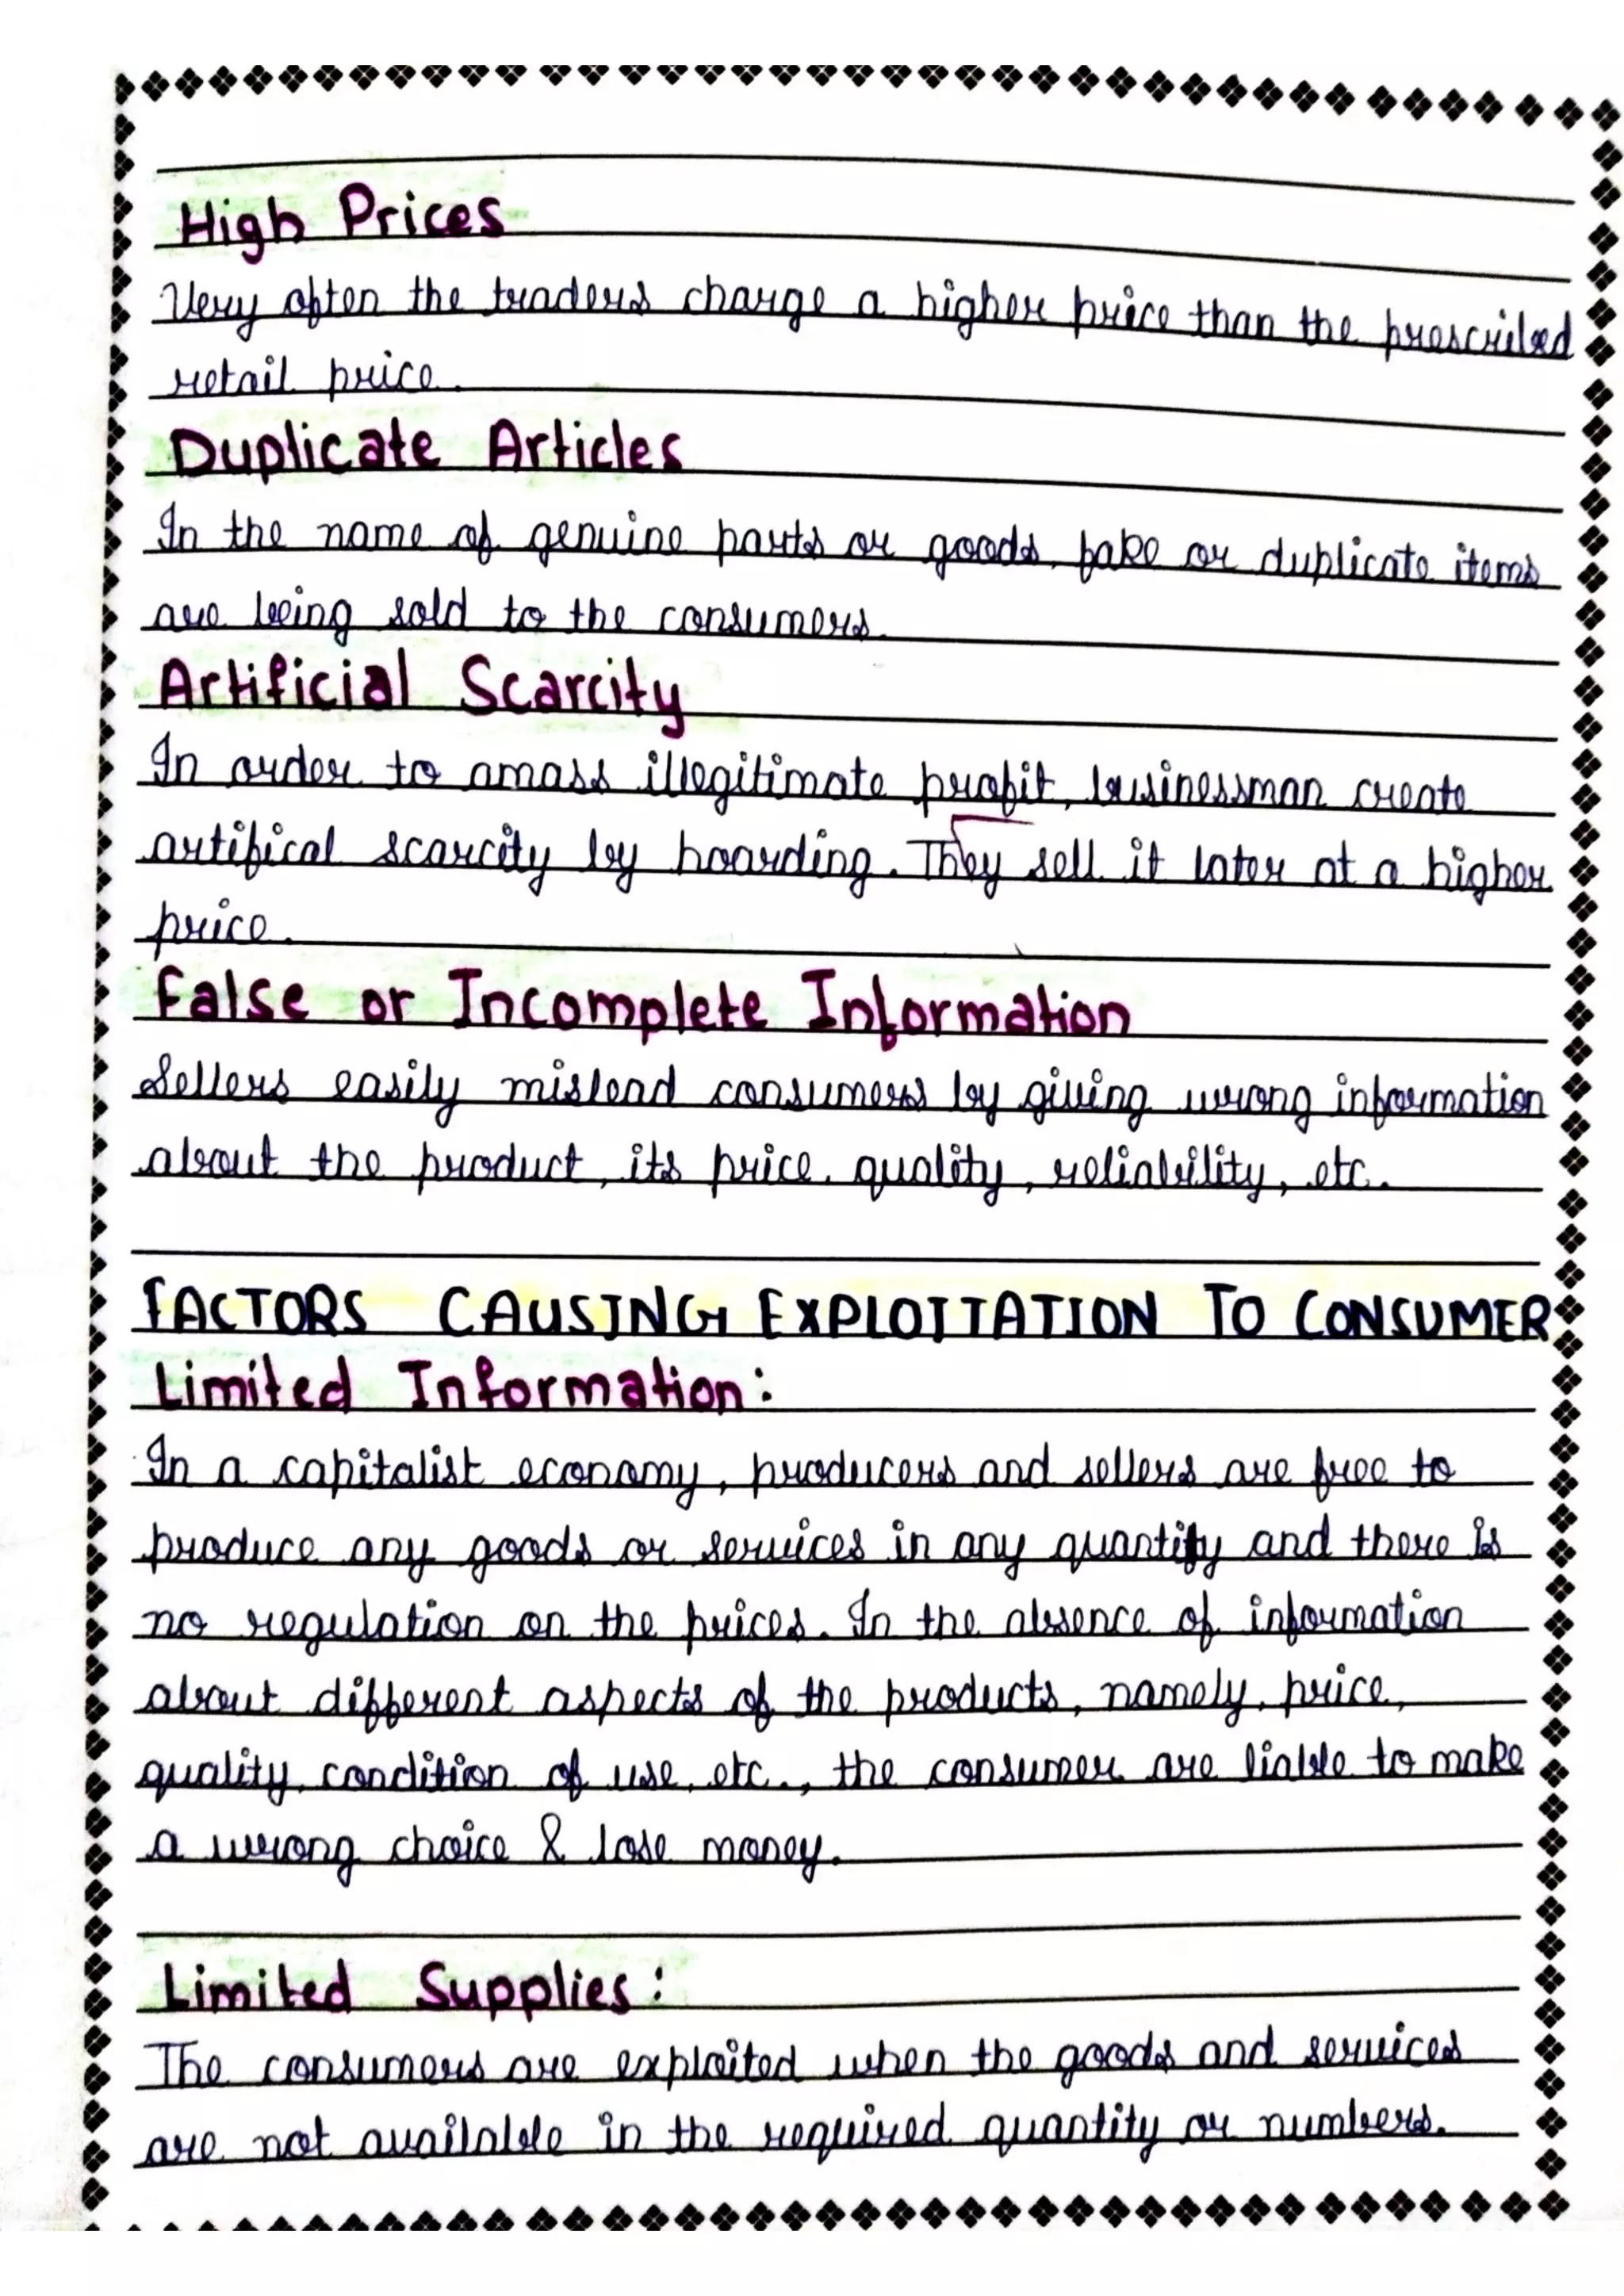 High Prices
Very often the traders charge a higher price than the prescribed
retail price.
Duplicate Articles
In the name of genuine parts or goods, fake or duplicate items
are being sold to the consumers.
Artificial Scarcity
In order to amass illegitimate profit, businessman create
artifical scarcity by hoarding. They sell it later at a higher
price.
False or Incomplete Information
Sellers easily mislead consumers by giving wrong information
about the product, its price, quality, reliability, etc.
FACTORS CAUSING EXPLOITATION TO CONSUMER
Limited Information:
In a capitalist economy, producers and sellers are free to
produce any goods or services in any quantity and there is
no regulation on the prices. In the absence of information
about different aspects of the products, namely, price,
quality, condition of use, etc., the consumer are liable to make
a wrong choice & lose money.
Limited Supplies:
The consumers are exploited when the goods and services
are not available in the required quantity or numbers.